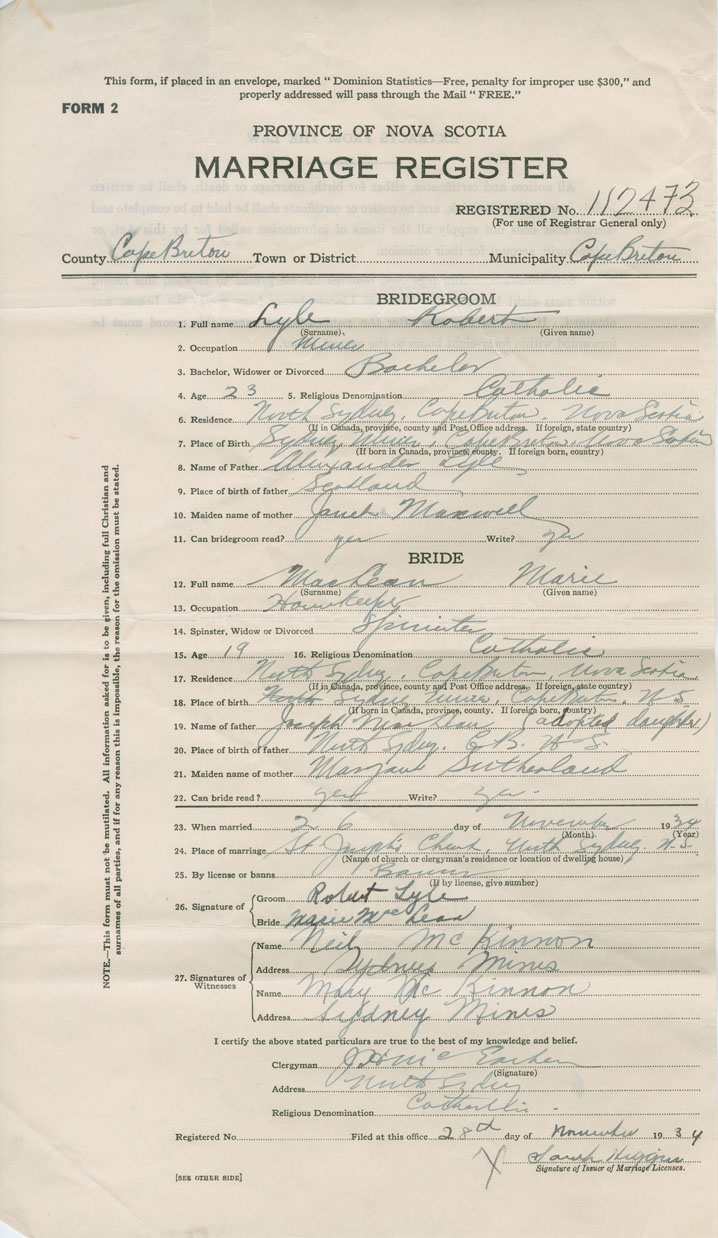 This form, if placed in an envelope, marked " Dominion Statistics—Free, penalty for improper use $300," and
properly addressed will pass through the Mail " FREE."
FORM 2
PROVINCE OF NOVA SCOTIA
MARRIAGE REGISTER
REGISTERED No. 112473
(For use of Registrar General only)
County Cape Breton Town or District Municipality Cape Breton
BRIDEGROOM
1. Full name Lyle Robert
(Surname) (Given name)
2. Occupation Miner
3. Bachelor, Widower or Divorced Bachelor
4. Age 23 5. Religious Denomination Catholic
6. Residence North Sydney, Cape Breton, Nova Scotia
(If in Canada, province, county and Post Office address. If foreign, state country)
7. Place of Birth Sydney Mines, Cape Breton, Nova Scotia
(If born in Canada, province, county. If foreign born, country)
8. Name of Father Alexander Lyle
9. Place of birth of father Scotland
10. Maiden name of mother Janet Maxwell
11. Can bridegroom read? yes Write? yes
BRIDE
12. Full name MacLean Marie
(Surname) (Given name)
13. Occupation Housekeeper
14. Spinster, Widow or Divorced Spinster
15. Age 19 16. Religious Denomination Catholic
17. Residence North Sydney, Cape Breton, Nova Scotia
(If in Canada, province, county and Post Office address. If foreign, state country)
18. Place of birth Sydney Mines, Cape Breton, N.S.
(If born in Canada, province, county. If foreign born, country)
19. Name of father Joseph (adopted daughter)
20. Place of birth of father North Sydney, C.B. N.S.
21. Maiden name of mother Margaret Sutherland
22. Can bride read? yes Write? yes
23. When married 26 day of November 1934
(Month) (Year)
24. Place of marriage St. Joseph's Church, North Sydney, N.S.
(Name of church or clergyman's residence or location of dwelling house)
25. By license or banns Banns
(If by license, give number)
26. Signature of Groom Robert Lyle
Bride Marie McLean
27. Signatures of Witnesses
Name Neil McKinnon
Address Sydney Mines
Name Mary McKinnon
Address Sydney Mines
I certify the above stated particulars are true to the best of my knowledge and belief.
Clergyman
(Signature)
Address North Sydney
Religious Denomination Catholic
Registered No. Filed at this office 28th day of November 1934
Sarah Higgins
Signature of Issuer of Marriage Licenses.
[SEE OTHER SIDE]
NOTE.—This form must not be mutilated. All information asked for is to be given, including full Christian and
surnames of all parties, and if for any reason this is impossible, the reason for the omission must be stated.